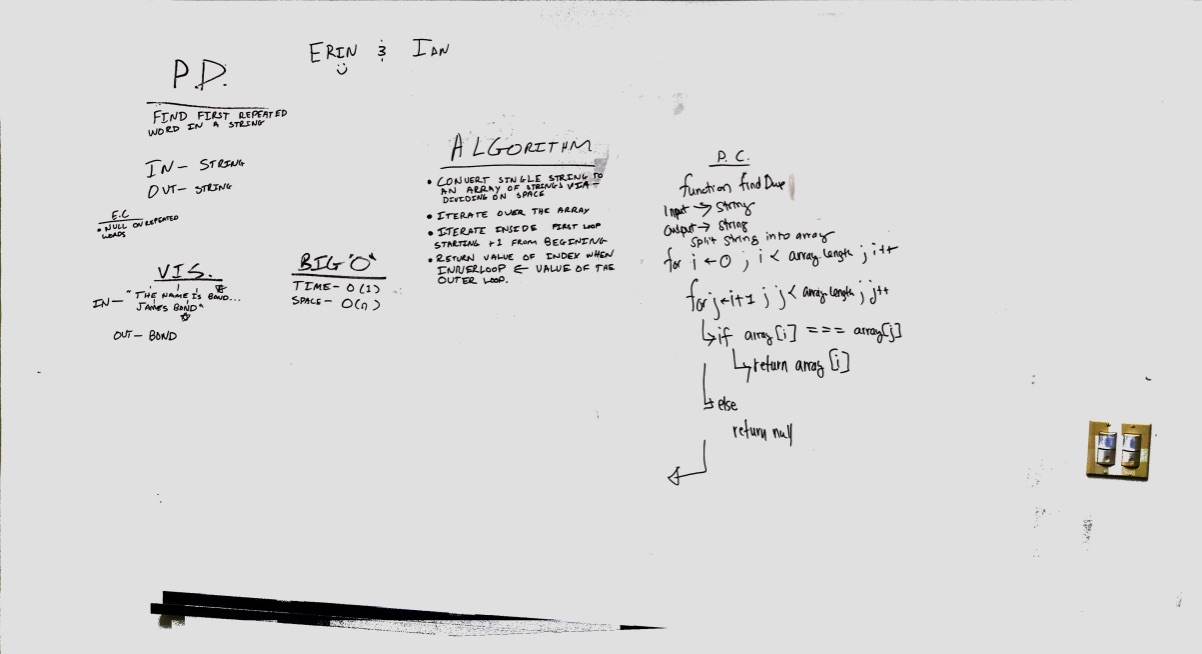 ERIN & IAN
P.D.
FIND FIRST REPEATED
WORD IN A STRING
IN - STRING
OUT - STRING
E.C
• NULL ON REPEATED
WORDS
VIS.
IN - "THE NAME IS BOND...
JAMES BOND"
OUT - BOND
BIG "O"
TIME - O(1)
SPACE - O(n)
ALGORITHM
• CONVERT SINGLE STRING TO
AN ARRAY OF STRINGS VIA -
DIVIDING ON SPACE
• ITERATE OVER THE ARRAY
• ITERATE INSIDE FIRST LOOP
STARTING +1 FROM BEGINING
• RETURN VALUE OF INDEX WHEN
INNERLOOP ← VALUE OF THE
OUTER LOOP.
P.C.
function findDupe
Input → String
Output → String
split string into array
for i ← 0 ; i < array.length ; i++
for j ← i+1 ; j < array.length ; j++
↳ if array[i] === array[j]
↳ return array[i]
↳ else
return null